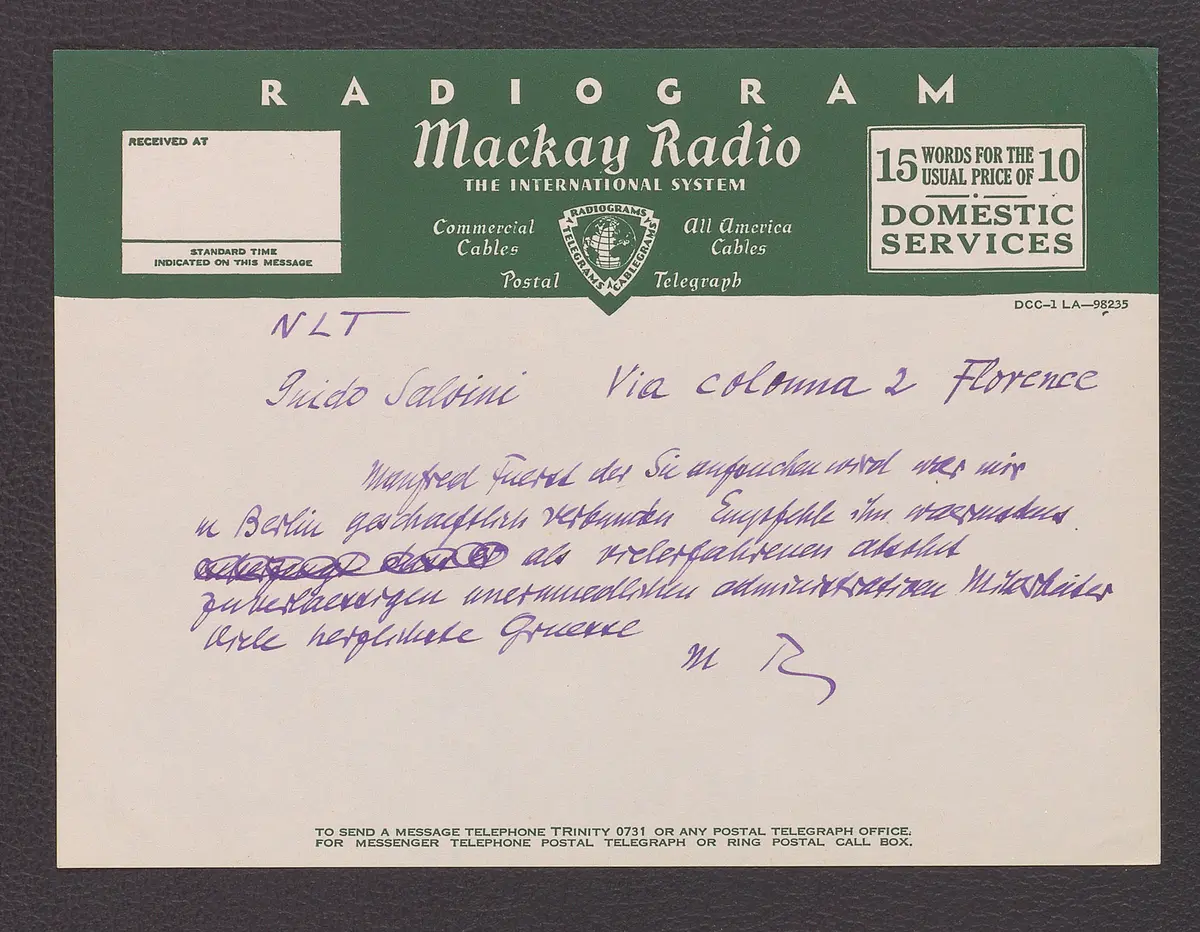 RADIOGRAM
RECEIVED AT
STANDARD TIME
INDICATED ON THIS MESSAGE
Mackay Radio
THE INTERNATIONAL SYSTEM
Commercial Cables
All America Cables
Postal Telegraph
RADIOGRAMS
TELEGRAMS
CABLEGRAMS
15 WORDS FOR THE USUAL PRICE OF 10
DOMESTIC
SERVICES
DCC–1 LA—98235
NLT
Guido Salvini Via colonna 2 Florence
Manfred Fuerst der Sie aufsuchen wird war mir
in Berlin geschaeftlich verbunden Empfehle ihn waermstens
als vielerfahrenen absolut
zuverlaessigen unermuedlichen administrativen Mitarbeiter
Viele herzlichste Gruesse
M R
TO SEND A MESSAGE TELEPHONE TRINITY 0731 OR ANY POSTAL TELEGRAPH OFFICE.
FOR MESSENGER TELEPHONE POSTAL TELEGRAPH OR RING POSTAL CALL BOX.